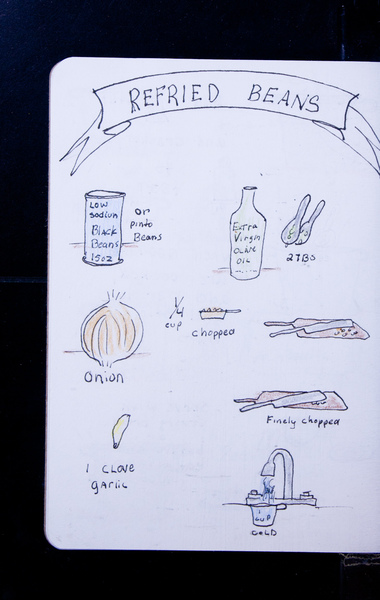 REFRIED BEANS
LOW
sodium
Black
Beans
15oz
or
pinto
Beans
Extra
Virgin
OLIVE
OIL
2TBS
1/4
cup
chopped
Onion
Finely chopped
1 CLOVE
garlic
1
CUP
COLD